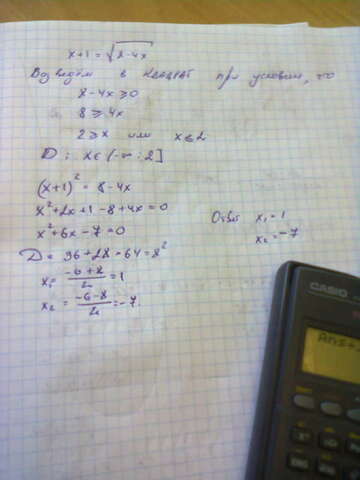 x+1 = √8-4x
Возведём в квадрат при условии, что
8-4x ≥ 0
8 ≥ 4x
2 ≥ x или x ≤ 2
D : x ∈ (-∞ ; 2]
(x+1)² = 8-4x
x²+2x+1-8+4x=0
x²+6x-7=0
D = 36+28=64=8²
x₁ = (-6+8)/2 = 1
x₂ = (-6-8)/2 = -7.
Ответ x₁ = 1
x₂ = -7
CASIO
Ans